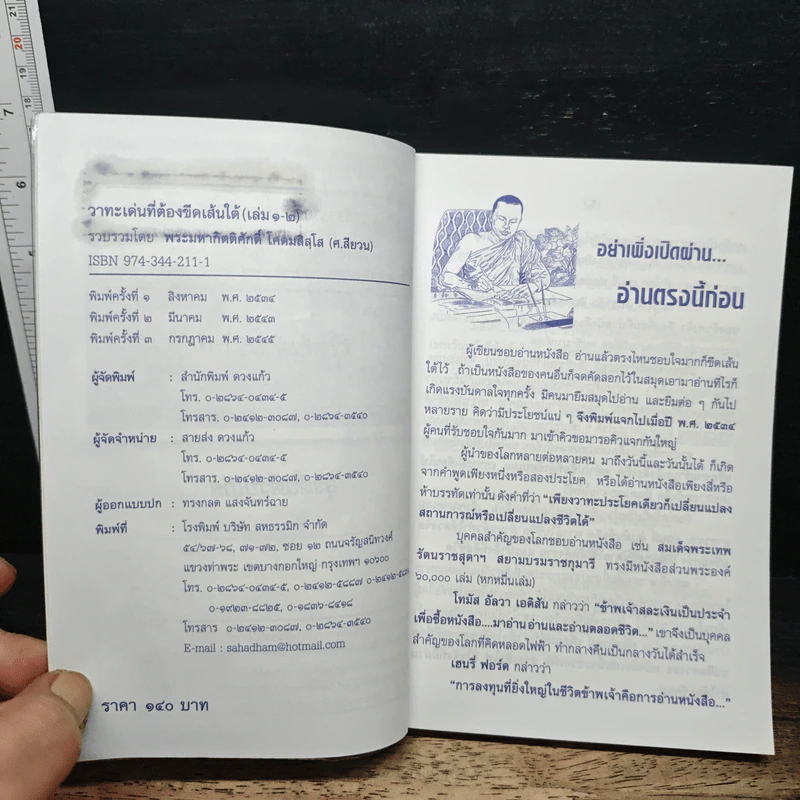 วาทะเด่นที่ต้องขีดเส้นใต้ (เล่ม ๑-๒)
รวบรวมโดย พระมหากิตติศักดิ์ โคตมสิสฺโส (ศ.สียวน)
ISBN 974-344-211-1
พิมพ์ครั้งที่ ๑ สิงหาคม พ.ศ. ๒๕๓๔
พิมพ์ครั้งที่ ๒ มีนาคม พ.ศ. ๒๕๔๓
พิมพ์ครั้งที่ ๓ กรกฎาคม พ.ศ. ๒๕๔๕
ผู้จัดพิมพ์ : สำนักพิมพ์ ดวงแก้ว
โทร. ๐-๒๘๖๔-๐๔๓๔-๕
โทรสาร. ๐-๒๔๑๒-๓๐๘๗, ๐-๒๘๖๔-๓๕๔๐
ผู้จัดจำหน่าย : สายส่ง ดวงแก้ว
โทร. ๐-๒๘๖๔-๐๔๓๔-๕
โทรสาร. ๐-๒๔๑๒-๓๐๘๗, ๐-๒๘๖๔-๓๕๔๐
ผู้ออกแบบปก : ทรงกลด แสงจันทร์ฉาย
พิมพ์ที่ : โรงพิมพ์ บริษัท สหธรรมิก จำกัด
๕๔/๖๗-๖๘, ๗๑-๗๒, ซอย ๑๒ ถนนจรัญสนิทวงศ์
แขวงท่าพระ เขตบางกอกใหญ่ กรุงเทพฯ ๑๐๖๐๐
โทร. ๐-๒๘๖๔-๐๔๓๔-๕, ๐-๒๔๑๒-๕๘๘๗ ๐-๒๔๑๒-
๐-๑๙๒๓-๘๘๒๕, ๐-๑๘๓๖-๘๔๑๘
โทรสาร ๐-๒๔๑๒-๓๐๘๗, ๐-๒๘๖๔-๓๕๔๐
E-mail : sahadham@hotmail.com
ราคา ๑๔๐ บาท
อย่าเพิ่งเปิดผ่าน...
อ่านตรงนี้ก่อน
ผู้เขียนชอบอ่านหนังสือ อ่านแล้วตรงไหนชอบใจมากก็ขีดเส้น
ใต้ไว้ ถ้าเป็นหนังสือของคนอื่นก็จดคัดลอกไว้ในสมุดเอามาอ่านทีไรก็
เกิดแรงบันดาลใจทุกครั้ง มีคนมายืมสมุดไปอ่าน และยืมต่อ ๆ กันไป
หลายราย คิดว่ามีประโยชน์แน่ ๆ จึงพิมพ์แจกไปเมื่อปี พ.ศ. ๒๕๓๔
ผู้คนที่รับชอบใจกันมาก มาเข้าคิวขอมารอคิวแจกกันใหญ่
ผู้นำของโลกหลายต่อหลายคน มาถึงวันนี้และวันนั้นได้ ก็เกิด
จากคำพูดเพียงหนึ่งหรือสองประโยค หรือได้อ่านหนังสือเพียงสี่หรือ
ห้าบรรทัดเท่านั้น ดังคำที่ว่า “เพียงวาทะประโยคเดียวก็เปลี่ยนแปลง
สถานการณ์หรือเปลี่ยนแปลงชีวิตได้”
บุคคลสำคัญของโลกชอบอ่านหนังสือ เช่น สมเด็จพระเทพ
รัตนราชสุดาฯ สยามบรมราชกุมารี ทรงมีหนังสือส่วนพระองค์
๖๐,๐๐๐ เล่ม (หกหมื่นเล่ม)
โทมัส อัลวา เอดิสัน กล่าวว่า “ข้าพเจ้าสละเงินเป็นประจำ
เพื่อซื้อหนังสือ....มาอ่าน อ่านและอ่านตลอดชีวิต...” เขาจึงเป็นบุคคล
สำคัญของโลกที่คิดหลอดไฟฟ้า ทำกลางคืนเป็นกลางวันได้สำเร็จ
เฮนรี่ ฟอร์ด กล่าวว่า
“การลงทุนที่ยิ่งใหญ่ในชีวิตข้าพเจ้าคือการอ่านหนังสือ...”
7
6
21
20
19
18